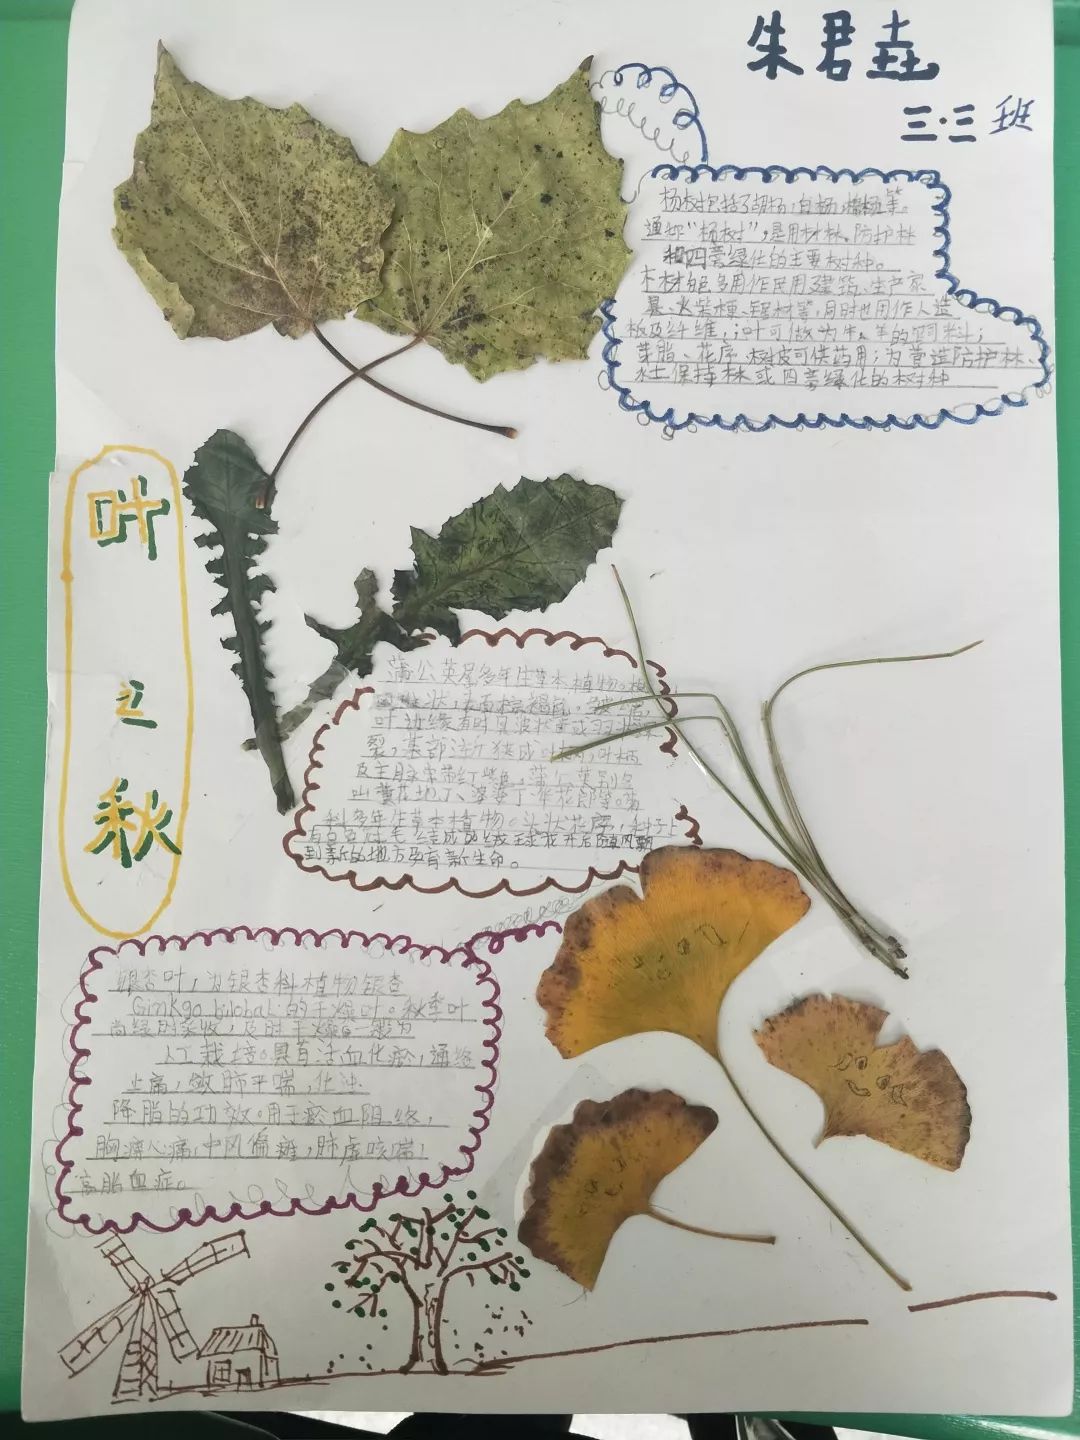 朱君垚
三·三班
杨树包括了胡杨,白杨,棉杨等。
通称"杨树",是用材林、防护林
和四旁绿化的主要树种。
木材的多用作民用建筑、生产家
具、火柴梗、锯材等,同时也用作人造
板及纤维,叶可做为牛、羊的饲料;
芽脂、花序、树皮可供药用;为营造防护林、
水土保持林或四旁绿化的树种
叶之秋
蒲公英属多年生草本植物。根
状,表面棕褐色,
叶边缘有时具波状齿或羽状深
裂,基部渐狭成叶柄,叶柄
及主脉常带红紫色,蒲公英别名
黄花地丁、婆婆丁、华花郎等。菊
科多年生草本植物。头状花序,种子上
有白色冠毛结成的绒球,花开后随风飘
到新的地方孕育新生命。
银杏叶,为银杏科植物银杏
Ginkgo biloba L 的干燥叶。秋季叶
尚绿时采收,及时干燥。一般为
人工栽培。具有活血化瘀,通络
止痛,敛肺平喘,化浊
降脂的功效。用于瘀血阻络,
胸痹心痛,中风偏瘫,肺虚咳喘,
高脂血症。